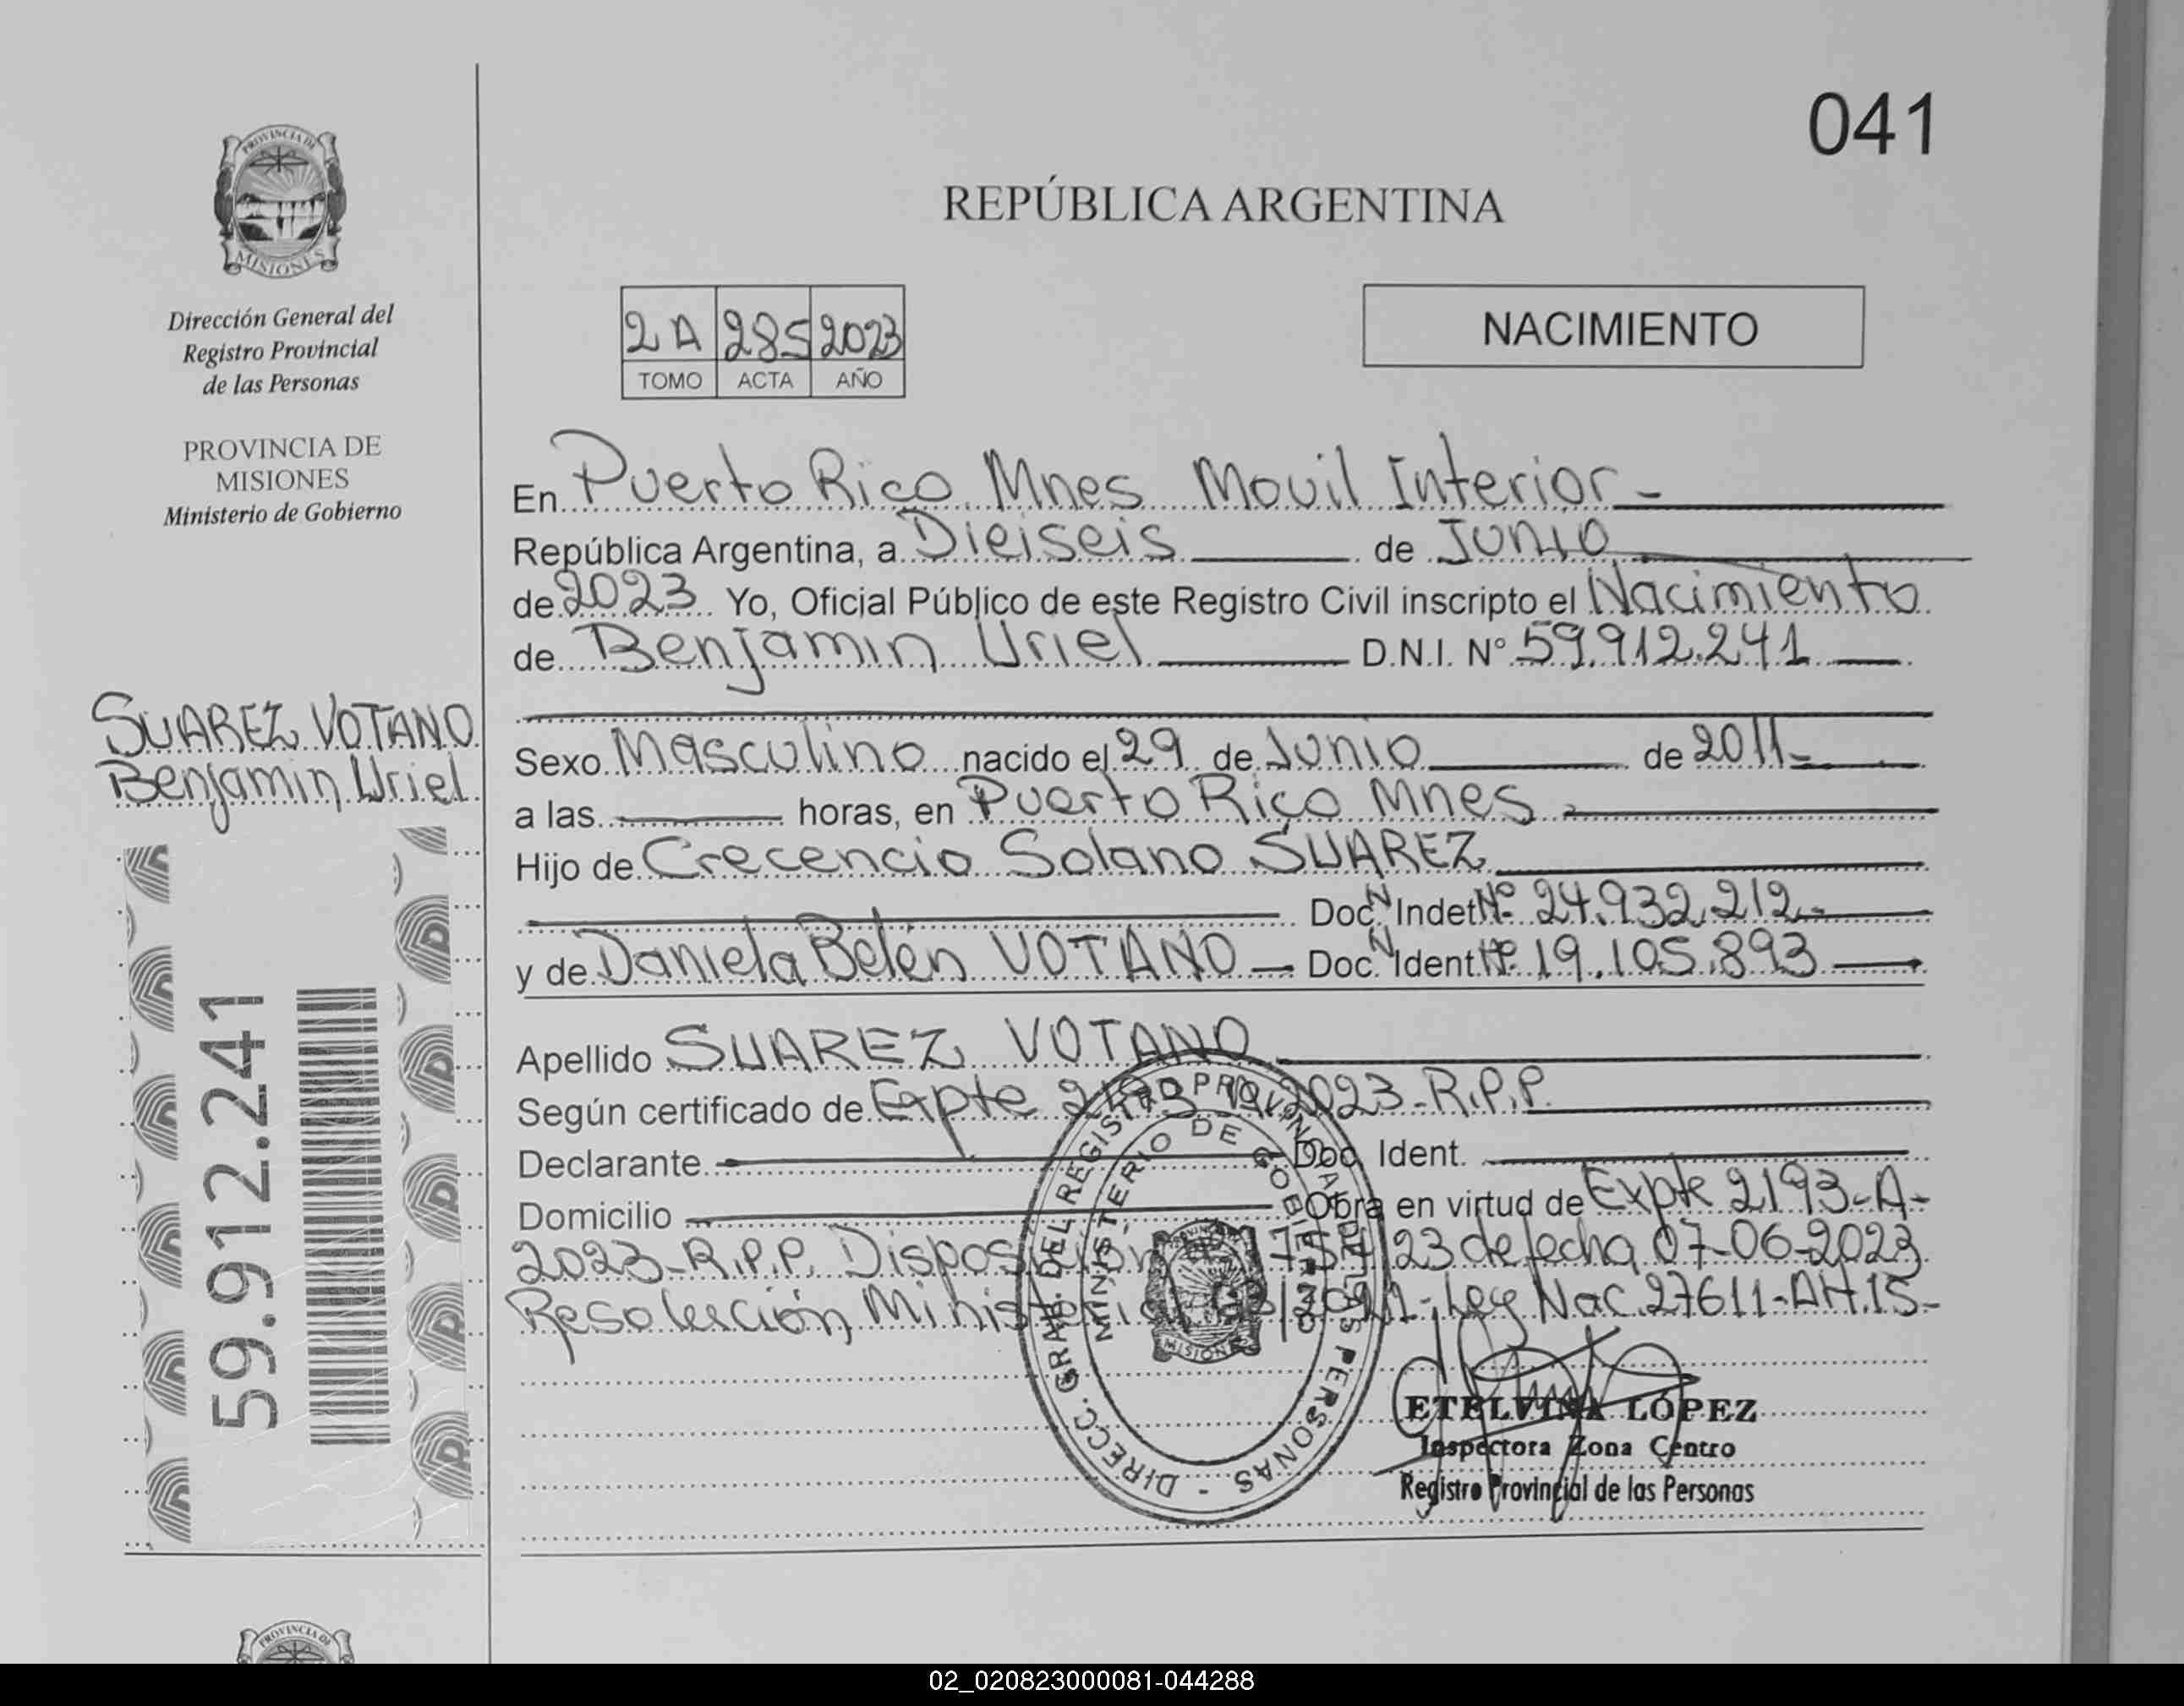 041
PROVINCIA DE
MISIONES
Dirección General del
Registro Provincial
de las Personas
PROVINCIA DE
MISIONES
Ministerio de Gobierno
SUAREZ VOTANO
Benjamin Uriel
59.912.241
REPÚBLICA ARGENTINA
2A 285 2023
TOMO ACTA AÑO
NACIMIENTO
En Puerto Rico Mnes Movil Interior -
República Argentina, a Dieiseis de Junio
de 2023 Yo, Oficial Público de este Registro Civil inscripto el Nacimiento
de Benjamin Uriel D.N.I. Nº 59.912.241
Sexo Masculino nacido el 29 de Junio de 2011-
a las horas, en Puerto Rico Mnes -
Hijo de Crecencio Solano SUAREZ
Doc. N Indet Nº 24.932.212-
y de Daniela Belén VOTANO - Doc. N Ident Nº 19.105.893
Apellido SUAREZ VOTANO
Según certificado de Expte 2193 2023-R.P.P.
Declarante Doc. Ident.
Domicilio Obra en virtud de Expte 2193-A-
2023-R.P.P. Disposición 23 de fecha 07-06-2023
Resolución Ministerial Ley Nac. 27611-Art.15-
DIRECC. GRAL. DEL REGISTRO PROVINCIAL DE LAS PERSONAS -
MINISTERIO DE GOBIERNO
MISIONES
ETELVINA LÓPEZ
Inspectora Zona Centro
Registro Provincial de las Personas
PROVINCIA DE
02_020823000081-044288